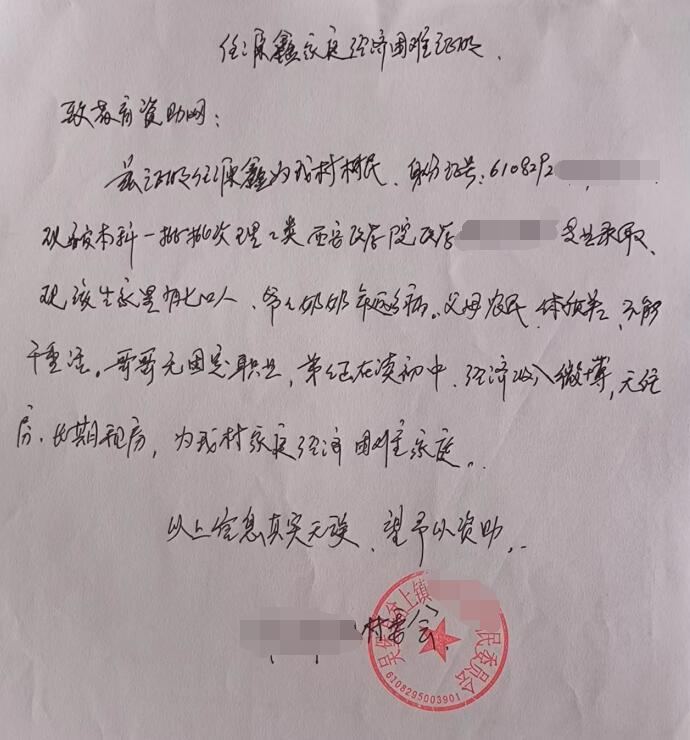 任源鑫家庭经济困难证明.
致教育资助网:
兹证明任源鑫为我村村民、身份证号:6108292
现被本科一批批次理工类西安医学院医学 专业录取、
现该生家里有七口人、爷爷奶奶年迈多病。父母农民、体质差、不能
干重活。哥哥无固定职业,弟弟还在读初中、经济收入微博,无住
房、长期租房,为我村家庭经济困难家庭。
以上信息真实无误、望予以资助。
村委会
吴 上镇 民委员会
6108295003901